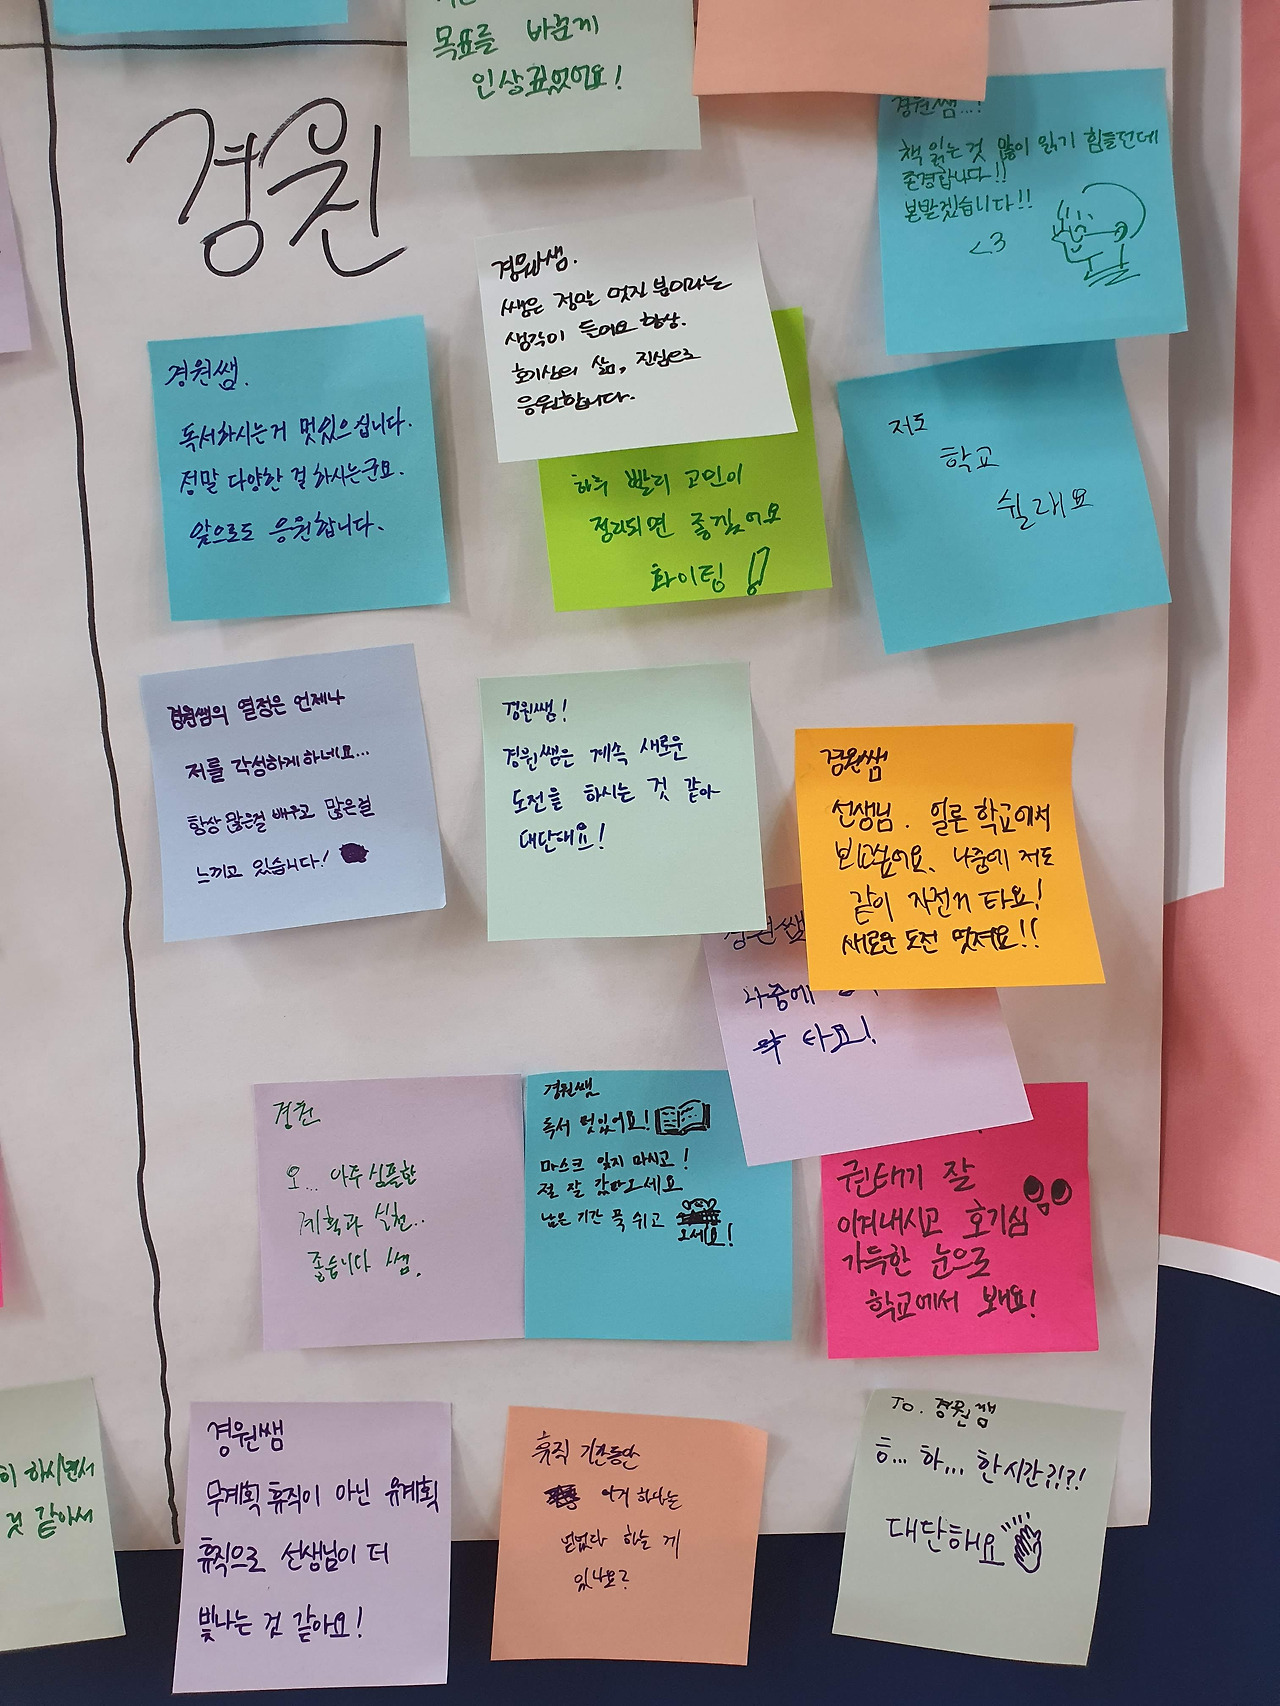 목표를 바꾼게
인상깊었어요!
경원
경원쌤...!
책 읽는 것 많이 읽기 힘들던데
존경합니다!!
본받겠습니다!!
<3
경원쌤.
쌤은 정말 멋진 분이라는
생각이 들어요 항상.
호기심의 삶, 진심으로
응원합니다.
경원쌤.
독서하시는거 멋있으십니다.
정말 다양한 걸 하시는군요.
앞으로도 응원합니다.
하루 빨리 고민이
정리되면 좋겠어요
화이팅!
저도
학교
쉴래요
경원쌤의 열정은 언제나
저를 각성하게 하네요...
항상 많은걸 배우고 많은걸
느끼고 있습니다!
경원쌤!
경원쌤은 계속 새로운
도전을 하시는 것 같아
대단해요!
경원쌤
선생님. 얼른 학교에서
보고싶어요. 나중에 저도
같이 자전거 타요!
새로운 도전 멋져요!!
경원쌤
나중에
타요!
경원
오... 아주 심플한
계획과 실천..
좋습니다 쌤.
경원쌤
독서 멋있어요!
마스크 잊지 마시고!
절 잘 갔다오세요
남은 기간 푹 쉬고
오세요!
권태기 잘
이겨내시고 호기심
가득한 눈으로
학교에서 봬요!
히 하시면서
것 같아서
경원쌤
무계획 휴직이 아닌 유계획
휴직으로 선생님이 더
빛나는 것 같아요!
휴직 기간동안
이거 하나는
얻었다 하는 게
있나요?
To. 경원쌤
ㅎ... 하... 한시간?!?!
대단해요